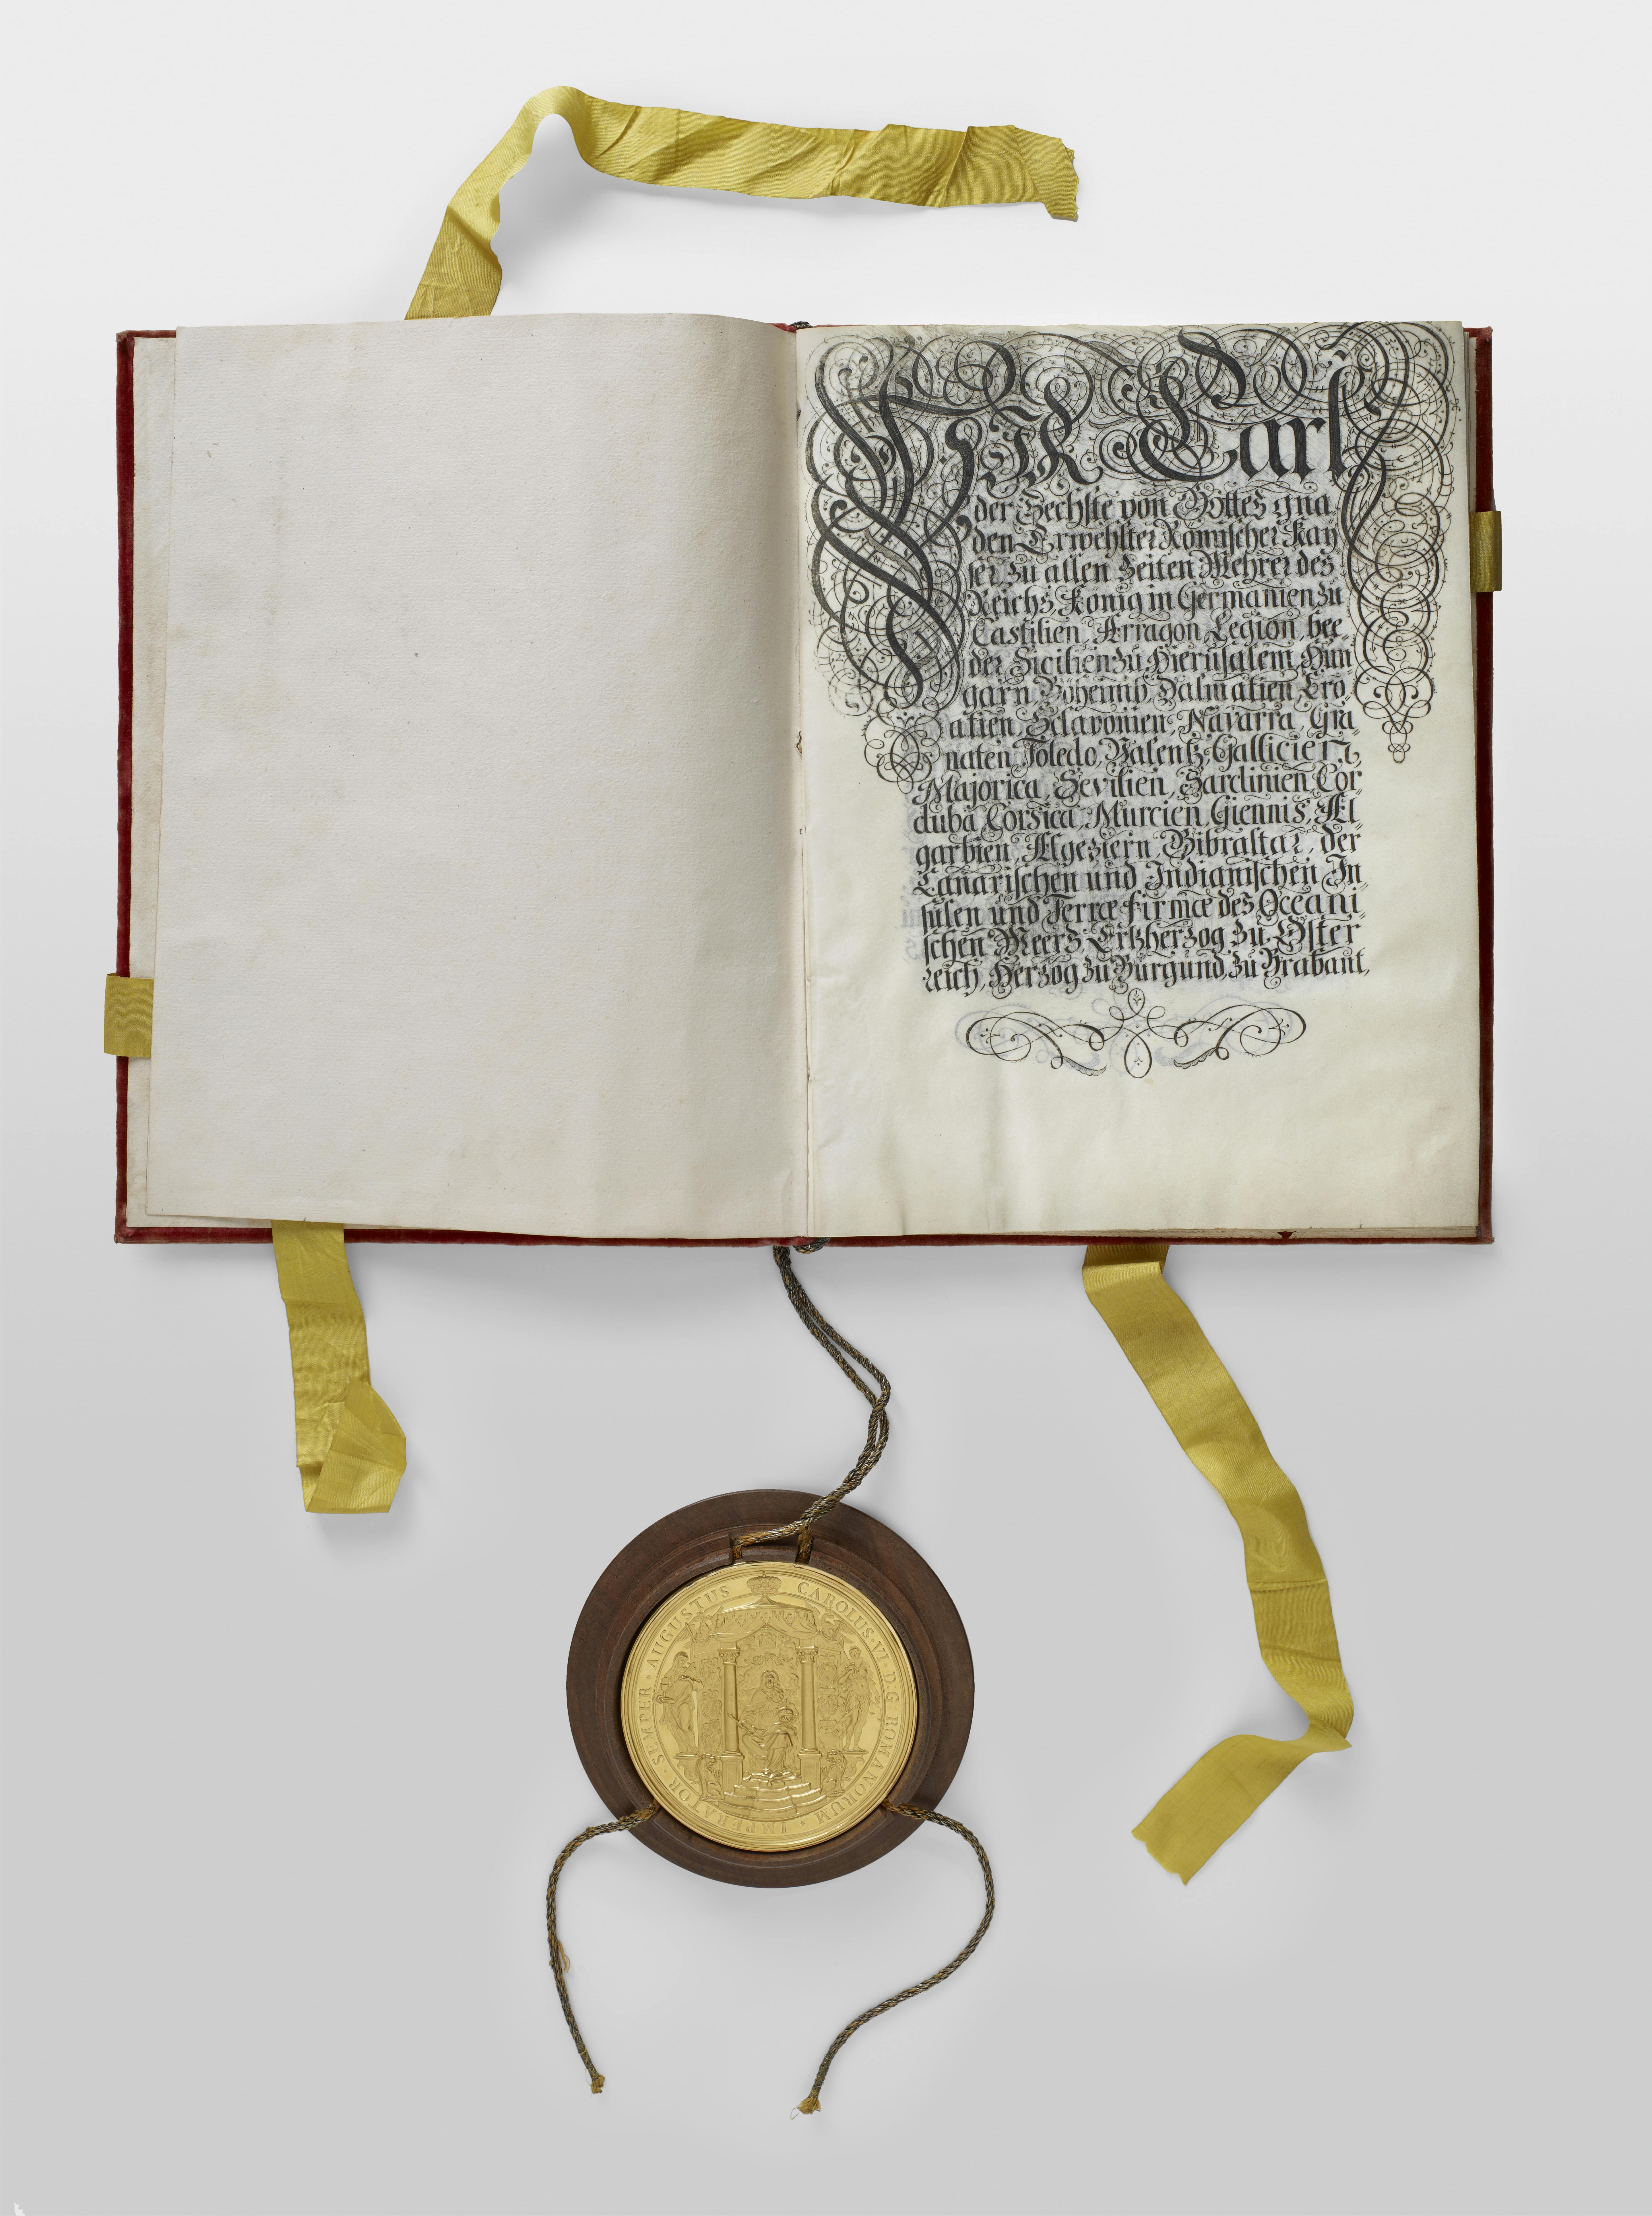 WIR Carl
der Sechste von Gottes gna
den Erwehlter Römischer Kay
ser zu allen Zeiten Mehrer des
Reichs, König in Germanien zu
Castilien, Arragon, Legion, bee-
der Sicilien zu Hierusalem, Hun
garn, Böheimb, Dalmatien, Cro
atien, Sclavonien, Navarra, Gra
naten, Toledo, Valentz, Gallicien,
Majorica, Sevilien, Sardinien, Cor
duba, Corsica, Murcien, Giennis, Al-
garbien, Algeziern, Gibraltar, der
Canarischen und Indianischen In
sulen und Terræ firmæ des Oceani-
schen Meers, Ertzherzog zu Öster
reich, Herzog zu Burgund, zu Brabant,
CAROLUS·VI·D·G·ROMANORUM·IMPERATOR·SEMPER·AUGUSTUS